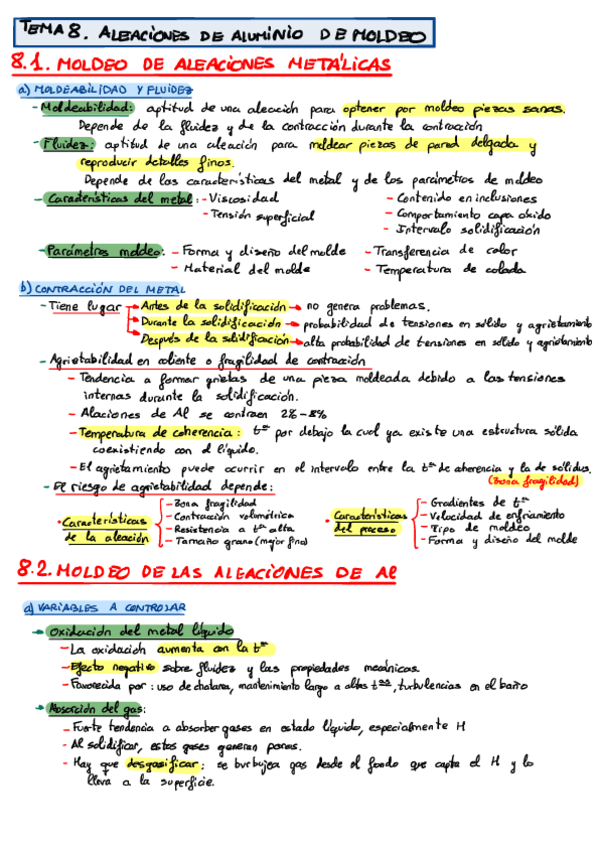 TEMA 8. ALEACIONES DE ALUMINIO DE MOLDEO
8.1. MOLDEO DE ALEACIONES METÁLICAS
a) MOLDEABILIDAD Y FLUIDEZ
- Moldeabilidad: aptitud de una aleación para optener por moldeo piezas sanas.
Depende de la fluidez y de la contracción durante la contracción
- Fluidez: aptitud de una aleación para moldear piezas de pared delgada y
reproducir detalles finos.
Depende de las características del metal y de los parámetros de moldeo
- Características del metal: - Viscosidad - Contenido en inclusiones
- Tensión superficial - Comportamiento capa óxido
- Intervalo solidificación
- Parámetros moldeo: - Forma y diseño del molde - Transferencia de calor
- Material del molde - Temperatura de colada
b) CONTRACCIÓN DEL METAL
- Tiene lugar → Antes de la solidificación → no genera problemas.
→ Durante la solidificación → probabilidad de tensiones en sólido y agrietamiento
→ Después de la solidificación → alta probabilidad de tensiones en sólido y agrietamiento
- Agrietabilidad en caliente o fragilidad de contracción
- Tendencia a formar grietas de una pieza moldeada debido a las tensiones
internas durante la solidificación.
- Alaciones de Al se contraen 2%-8%
- Temperatura de coherencia: tª por debajo la cual ya existe una estructura sólida
coexistiendo con el líquido.
- El agrietamiento puede ocurrir en el intervalo entre la tª de coherencia y la de sólidus.
(zona fragilidad)
- El riesgo de agrietabilidad depende:
• Características de la aleación
- Zona fragilidad
- Contracción volumétrica
- Resistencia a tª alta
- Tamaño grano (mejor fino)
• Características del proceso
- Gradientes de tª
- Velocidad de enfriamiento
- Tipo de moldeo
- Forma y diseño del molde
8.2. MOLDEO DE LAS ALEACIONES DE Al
a) VARIABLES A CONTROLAR
→ Oxidación del metal líquido
- La oxidación aumenta con la tª
- Efecto negativo sobre fluidez y las propiedades mecánicas.
- Favorecida por: uso de chatarras, mantenimiento largo a altas tªs, turbulencias en el baño
→ Absorción del gas:
- Fuerte tendencia a absorber gases en estado líquido, especialmente H
- Al solidificar, estos gases generan poros.
- Hay que desgasificar: se burbujea gas desde el fondo que capta el H y lo
lleva a la superficie.